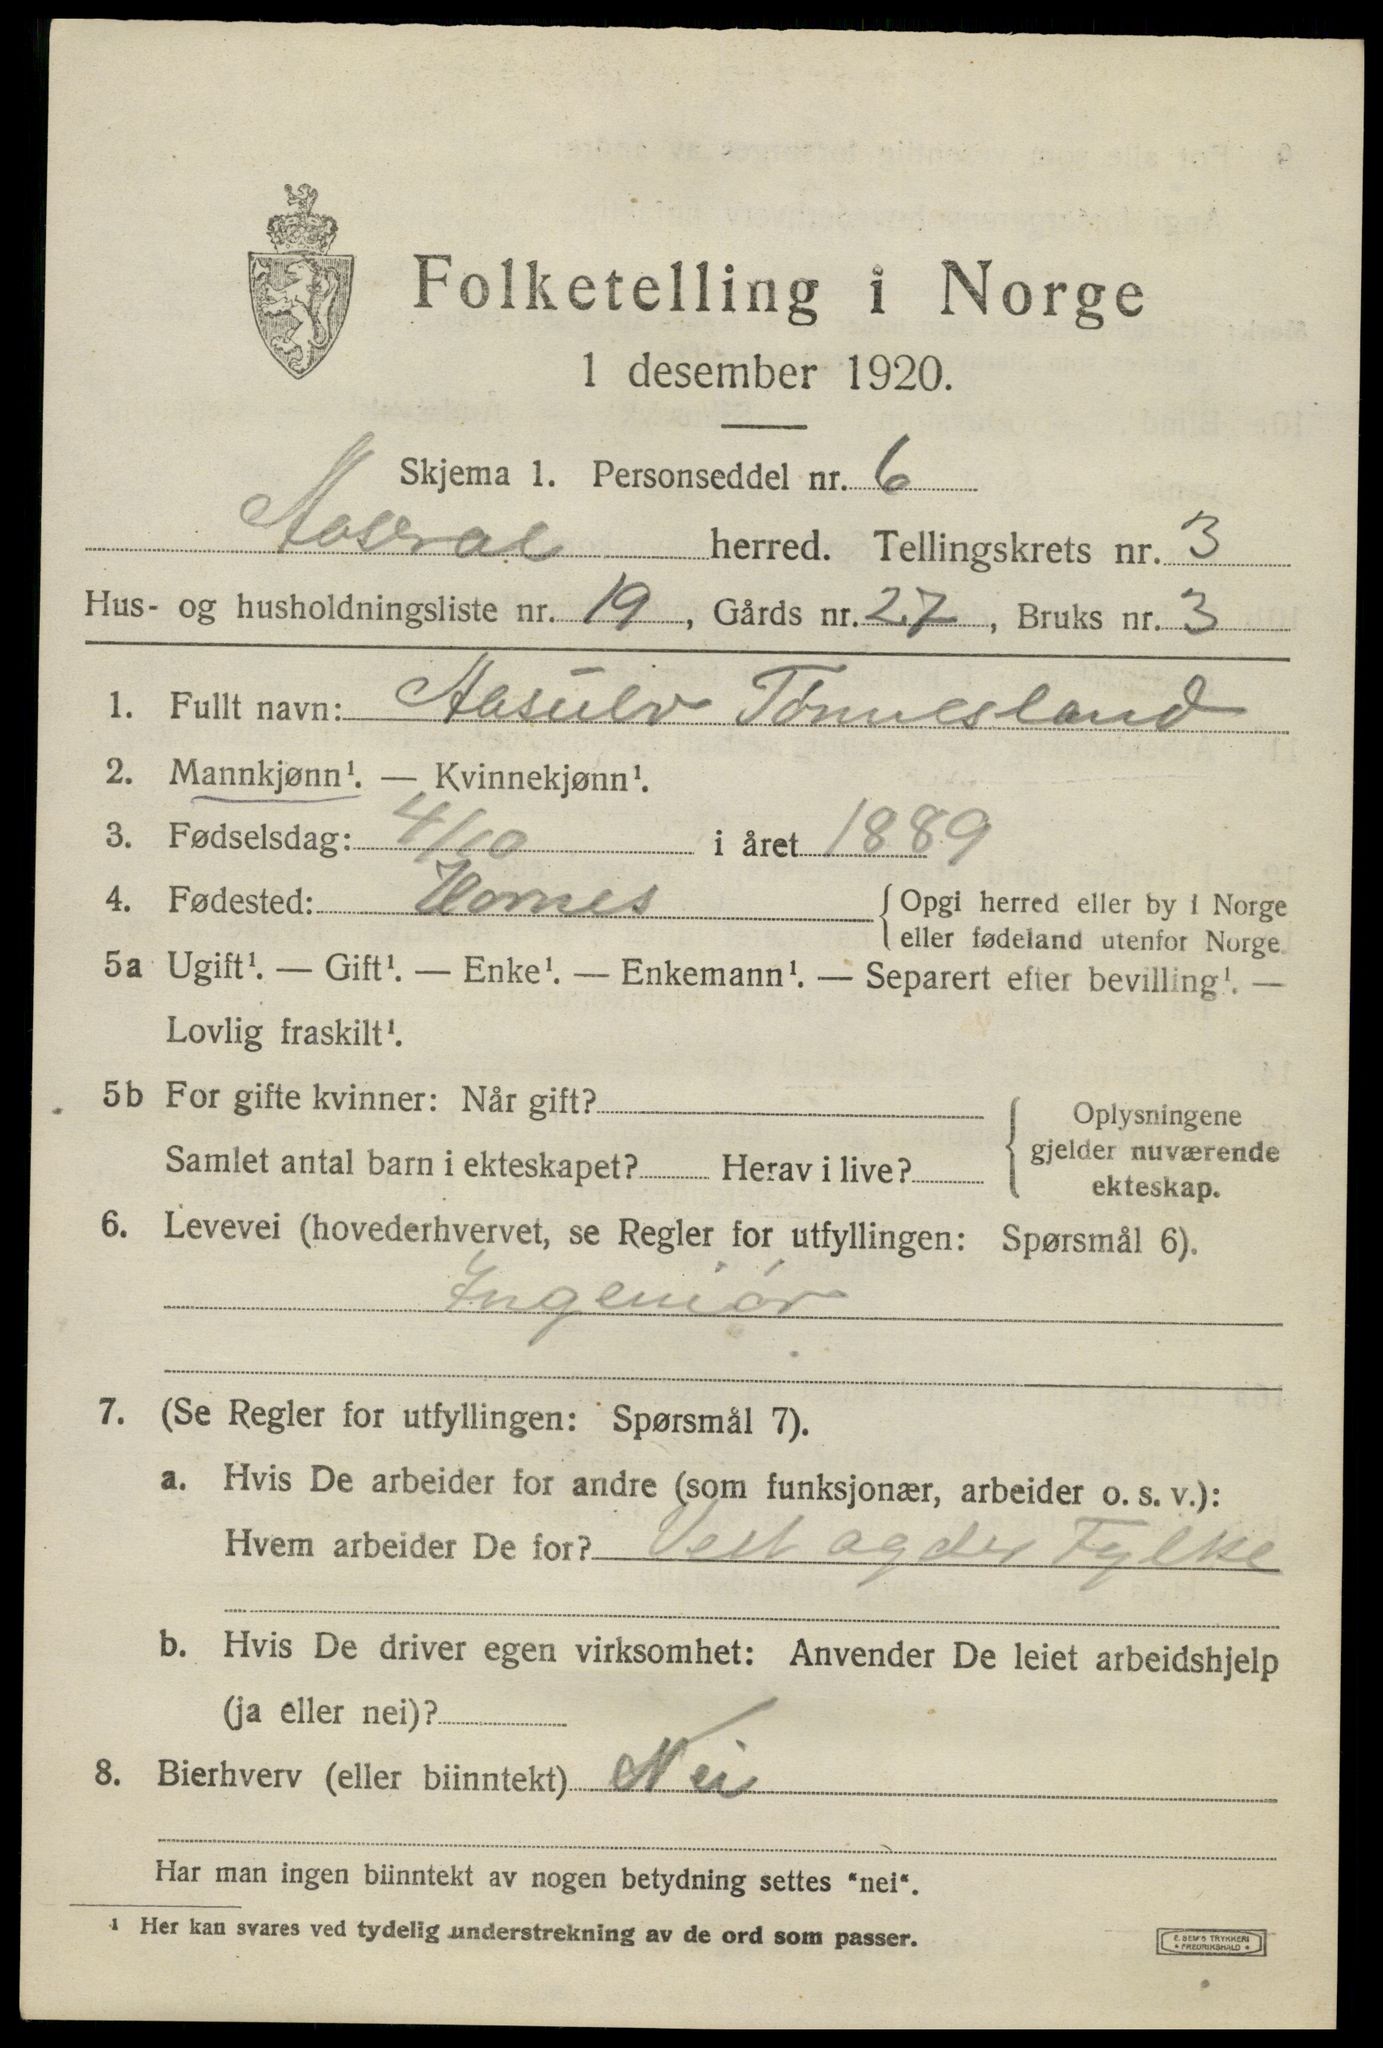 Folketelling i Norge
1 desember 1920.
Skjema 1. Personseddel nr. 6
Aaseral herred. Tellingskrets nr. 3
Hus- og husholdningsliste nr. 19, Gårds nr. 27, Bruks nr. 3
1. Fullt navn: Aasulv Tønnesland
2. Mannkjønn¹. — Kvinnekjønn¹.
3. Fødselsdag: 4/10 i året 1889
4. Fødested: Hornes { Opgi herred eller by i Norge
eller fødeland utenfor Norge.
5a Ugift¹. — Gift¹. — Enke¹. — Enkemann¹. — Separert efter bevilling¹. —
Lovlig fraskilt¹.
5b For gifte kvinner: Når gift? { Oplysningene
gjelder nuværende
Samlet antal barn i ekteskapet? Herav i live? ekteskap.
6. Levevei (hovederhvervet, se Regler for utfyllingen: Spørsmål 6).
Ingeniør
7. (Se Regler for utfyllingen: Spørsmål 7).
a. Hvis De arbeider for andre (som funksjonær, arbeider o. s. v.):
Hvem arbeider De for? Vest agder Fylke
b. Hvis De driver egen virksomhet: Anvender De leiet arbeidshjelp
(ja eller nei)?
8. Bierhverv (eller biinntekt) Nei
Har man ingen biinntekt av nogen betydning settes "nei".
¹ Her kan svares ved tydelig understrekning av de ord som passer.
E. SEM'S TRYKKERI
* FREDRIKSHALD *